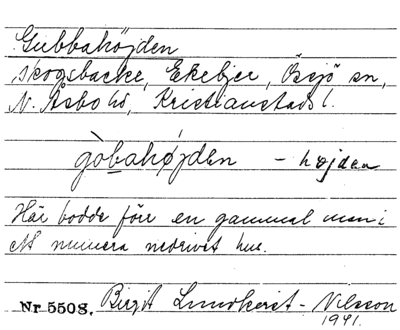 Gubbahöjden
skogsbacke, Ekebjer, Össjö sn,
N. Åsbo hd, Kristianstads l.
gòbahøjden – højden
Här bodde förr en gammal man i
ett numera nedrivet hus.
Nr 5508. Birgit Lundkvist-Nilsson
1941.